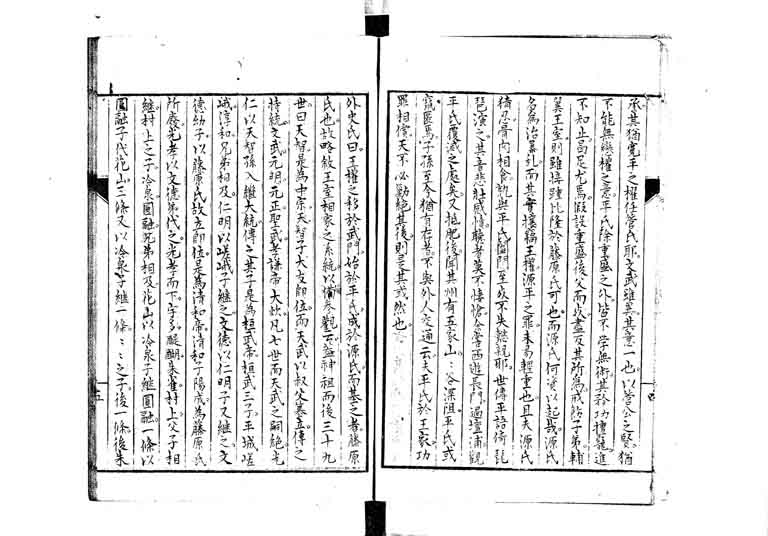 承其猶寬平之擢任管氏耶文武雖異其意一也以管公之賢猶
不能無攬權之意平氏除重盛之外皆不學無術其矜功擅寵進
不知止曷足尤焉假設重盛後父而沒盡反其所為戒飭子弟輔
翼王室則雖接踵比隆於藤原氏可也而源氏何資以起哉源氏
名為治暴乱而其實攘竊王權源平之罪未易輕重也且夫源氏
猜忍骨肉相食孰與平氏闔門至死不失懿親耶世傳平語倚琵
琶演之其音悲壯感慨聽者莫不悽愴余嘗西遊長門過壇浦觀
平氏覆滅之處矣又抵肥後聞其州有五家山：谷深阻平氏或
竄匿焉子孫至今猶有存者不與外人交通云夫平氏於王家功
罪相償天不必勦絕其後則是其或然也
外史氏曰王權之移於武門始於平氏成於源氏而基之者藤原
氏也故略敘王室相家之系統以備參觀云蓋神祖而後三十九
世曰天智是為中宗天智子大友即位而天武以叔父簒立傳之
持統文武元明元正聖武孝謙帝大炊凡七世而天武之嗣絕光
仁以天智孫入繼大統傳之其子是為桓武帝桓武三子平城嵯
峨淳和兄弟相及仁明以嵯峨子繼之文德以仁明子又繼之文
德幼子以藤原氏故立即位是為清和帝清和子陽成為藤原氏
所廢光孝以文德弟代之光孝而下宇多醍醐朱雀村上父子相
繼村上之子冷泉圓融兄弟相及花山以冷泉子繼圓融一條以
圓融子代花山三條又以冷泉子繼一條：：之子後一條後朱